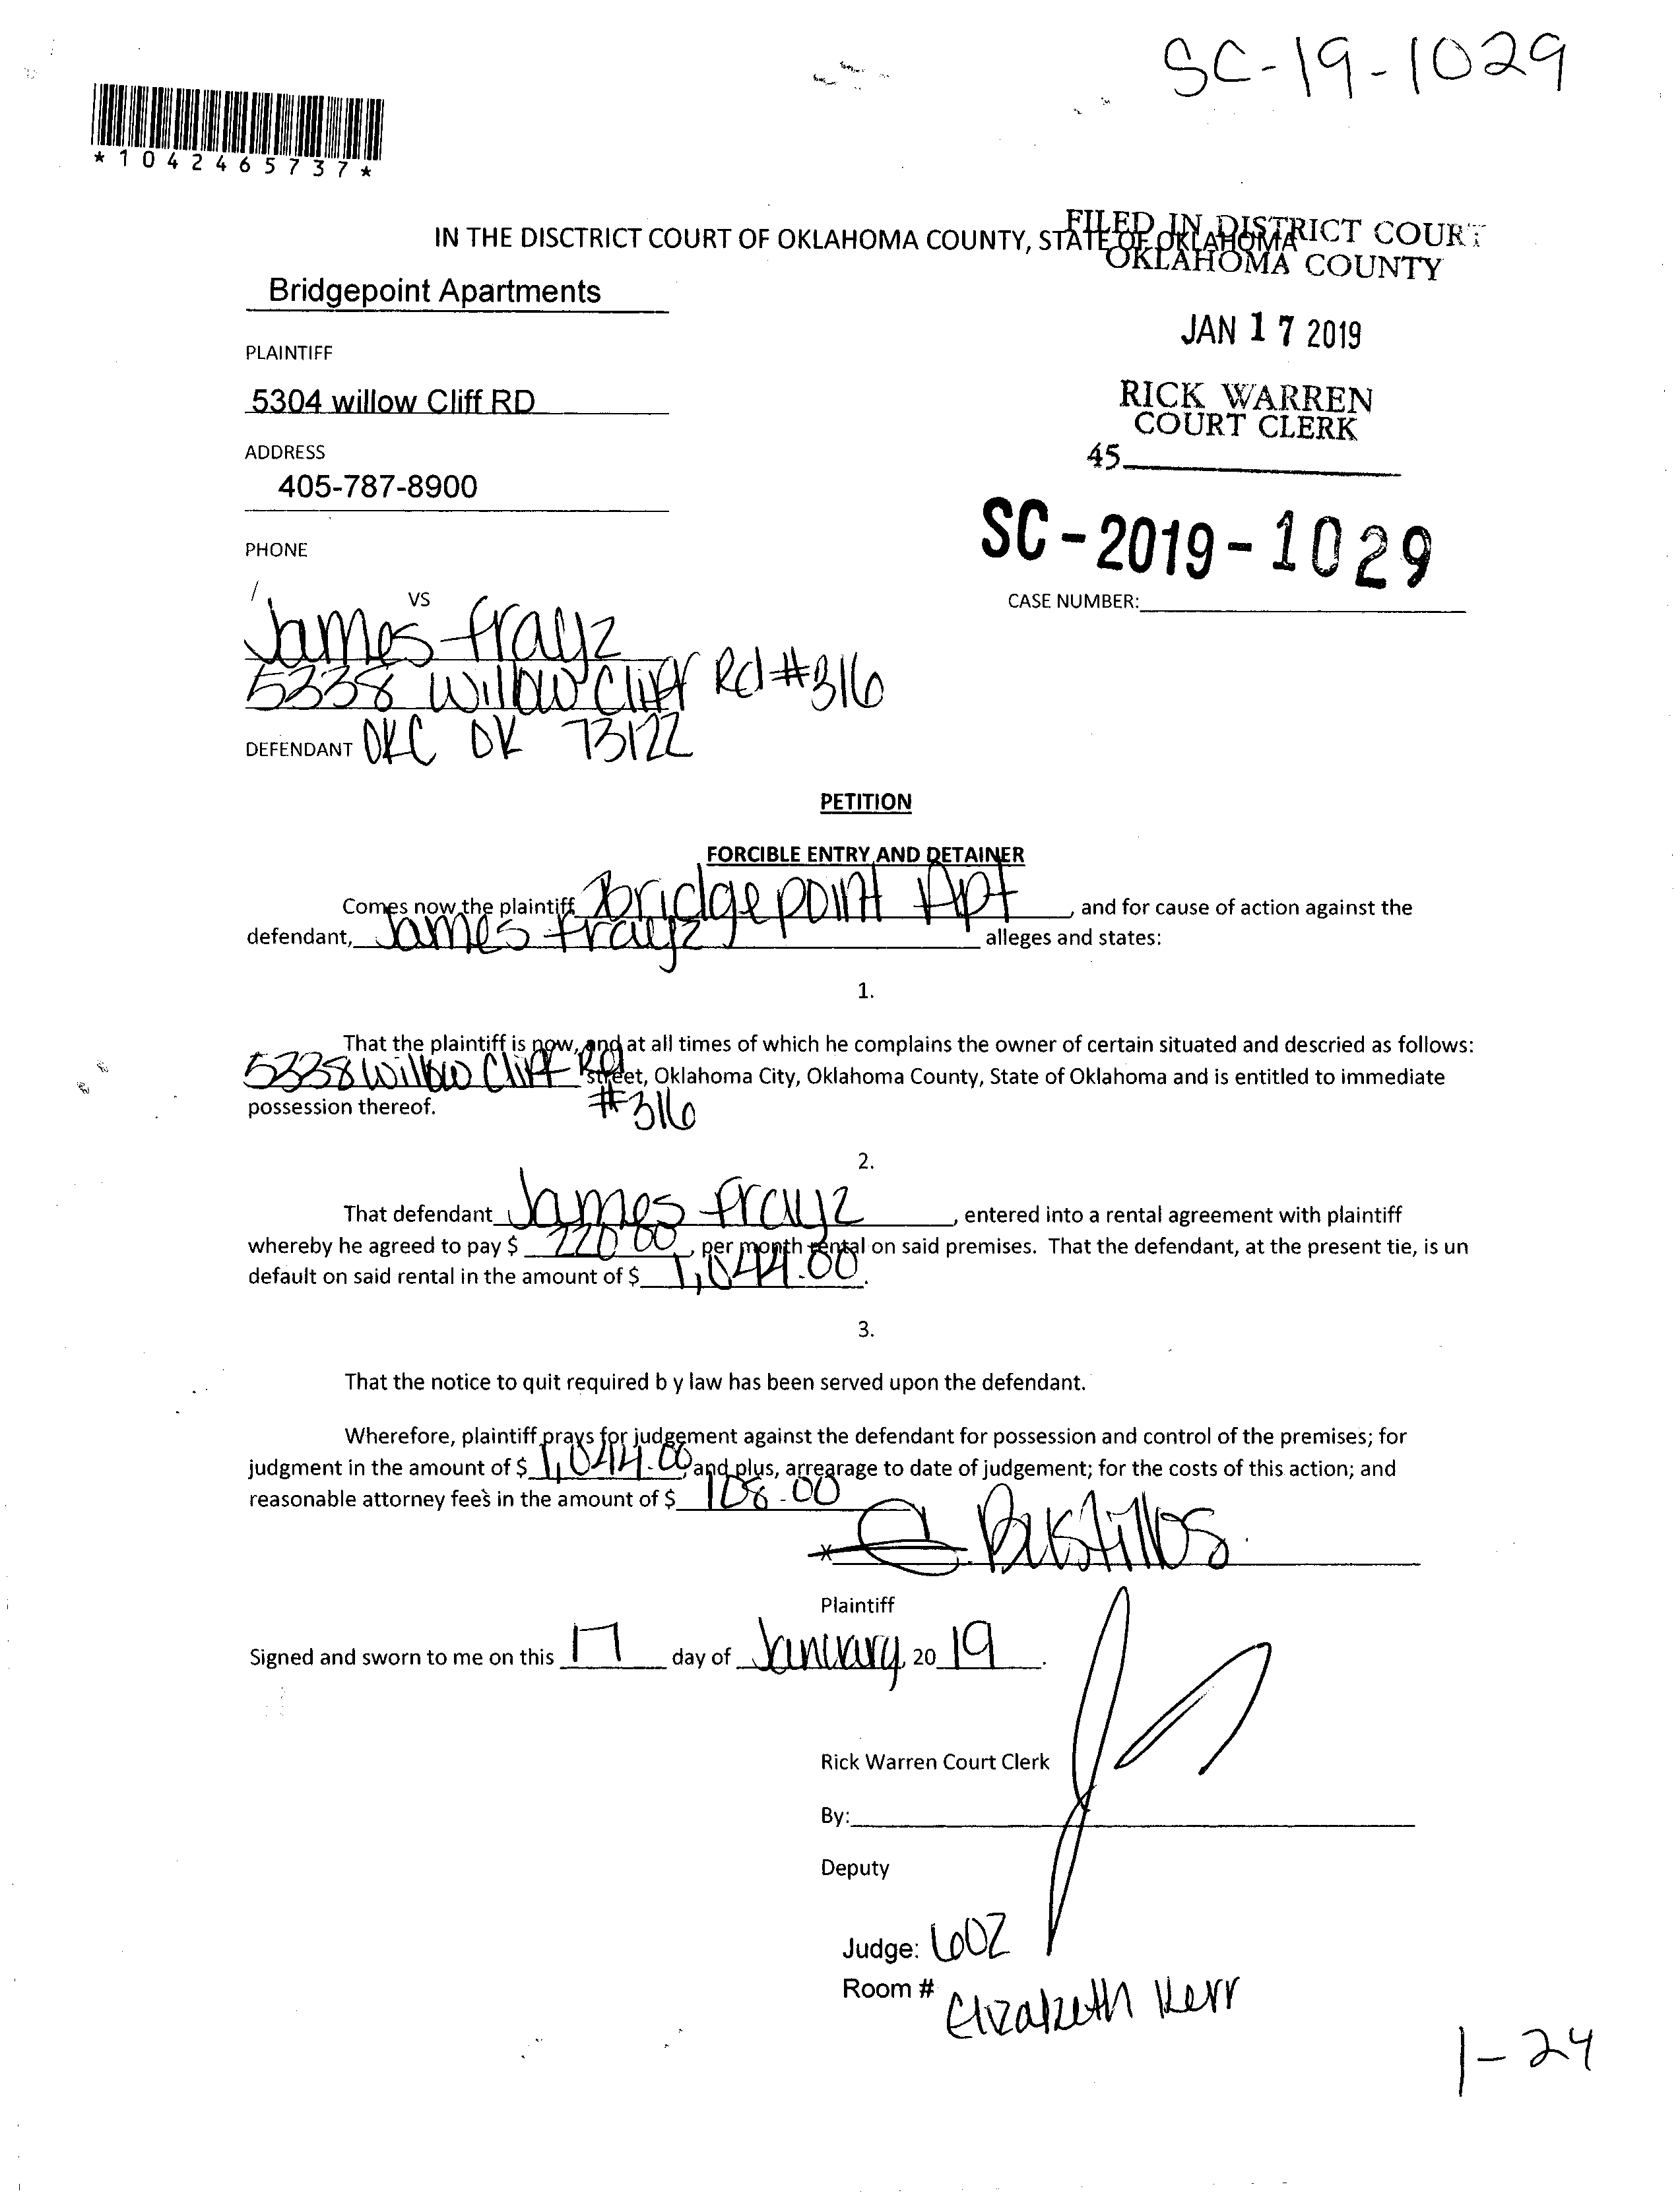 SC-19-1029
*1042465737*
IN THE DISCTRICT COURT OF OKLAHOMA COUNTY, STATE OF OKLAHOMA
FILED IN DISTRICT COURT
OKLAHOMA COUNTY
Bridgepoint Apartments
JAN 17 2019
PLAINTIFF
5304 willow Cliff RD
RICK WARREN
COURT CLERK
ADDRESS
45
405-787-8900
SC-2019-1029
PHONE
CASE NUMBER:
VS
James Frayz
5338 Willow Cliff Rd #316
DEFENDANT OKC OK 73122
PETITION
FORCIBLE ENTRY AND DETAINER
Comes now the plaintiff Bridgepoint Apt, and for cause of action against the
defendant, James Frayz alleges and states:
1.
That the plaintiff is now, and at all times of which he complains the owner of certain situated and descried as follows:
5338 Willow Cliff Rd street, Oklahoma City, Oklahoma County, State of Oklahoma and is entitled to immediate
possession thereof. #316
2.
That defendant James Frayz, entered into a rental agreement with plaintiff
whereby he agreed to pay $ 220.00, per month rental on said premises. That the defendant, at the present tie, is un
default on said rental in the amount of $ 1,044.00.
3.
That the notice to quit required b y law has been served upon the defendant.
Wherefore, plaintiff prays for judgement against the defendant for possession and control of the premises; for
judgment in the amount of $ 1,044.00, and plus, arrearage to date of judgement; for the costs of this action; and
reasonable attorney fee's in the amount of $ 108.00
x Bustillos
Plaintiff
Signed and sworn to me on this 17 day of January, 20 19.
Rick Warren Court Clerk
By:
Deputy
Judge: 602
Room # Elizabeth Kerr
1-24